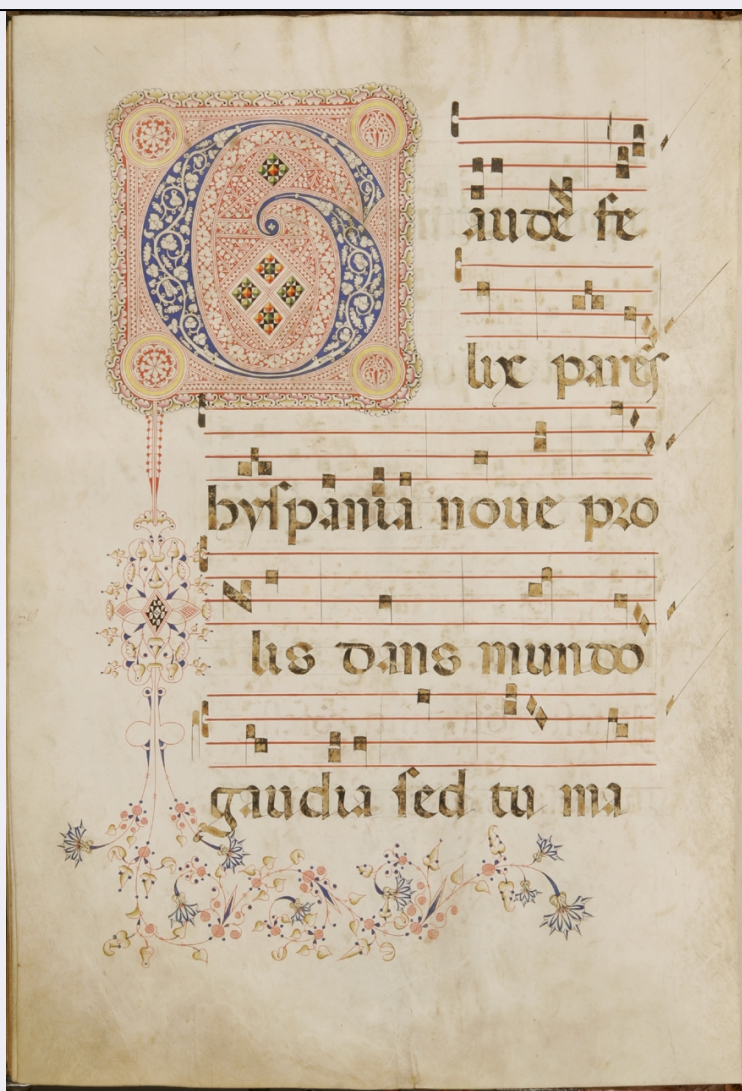 Gaude fe
lix parẽs
hyspania noue pro
lis dans mundo
gaudia sed tu ma